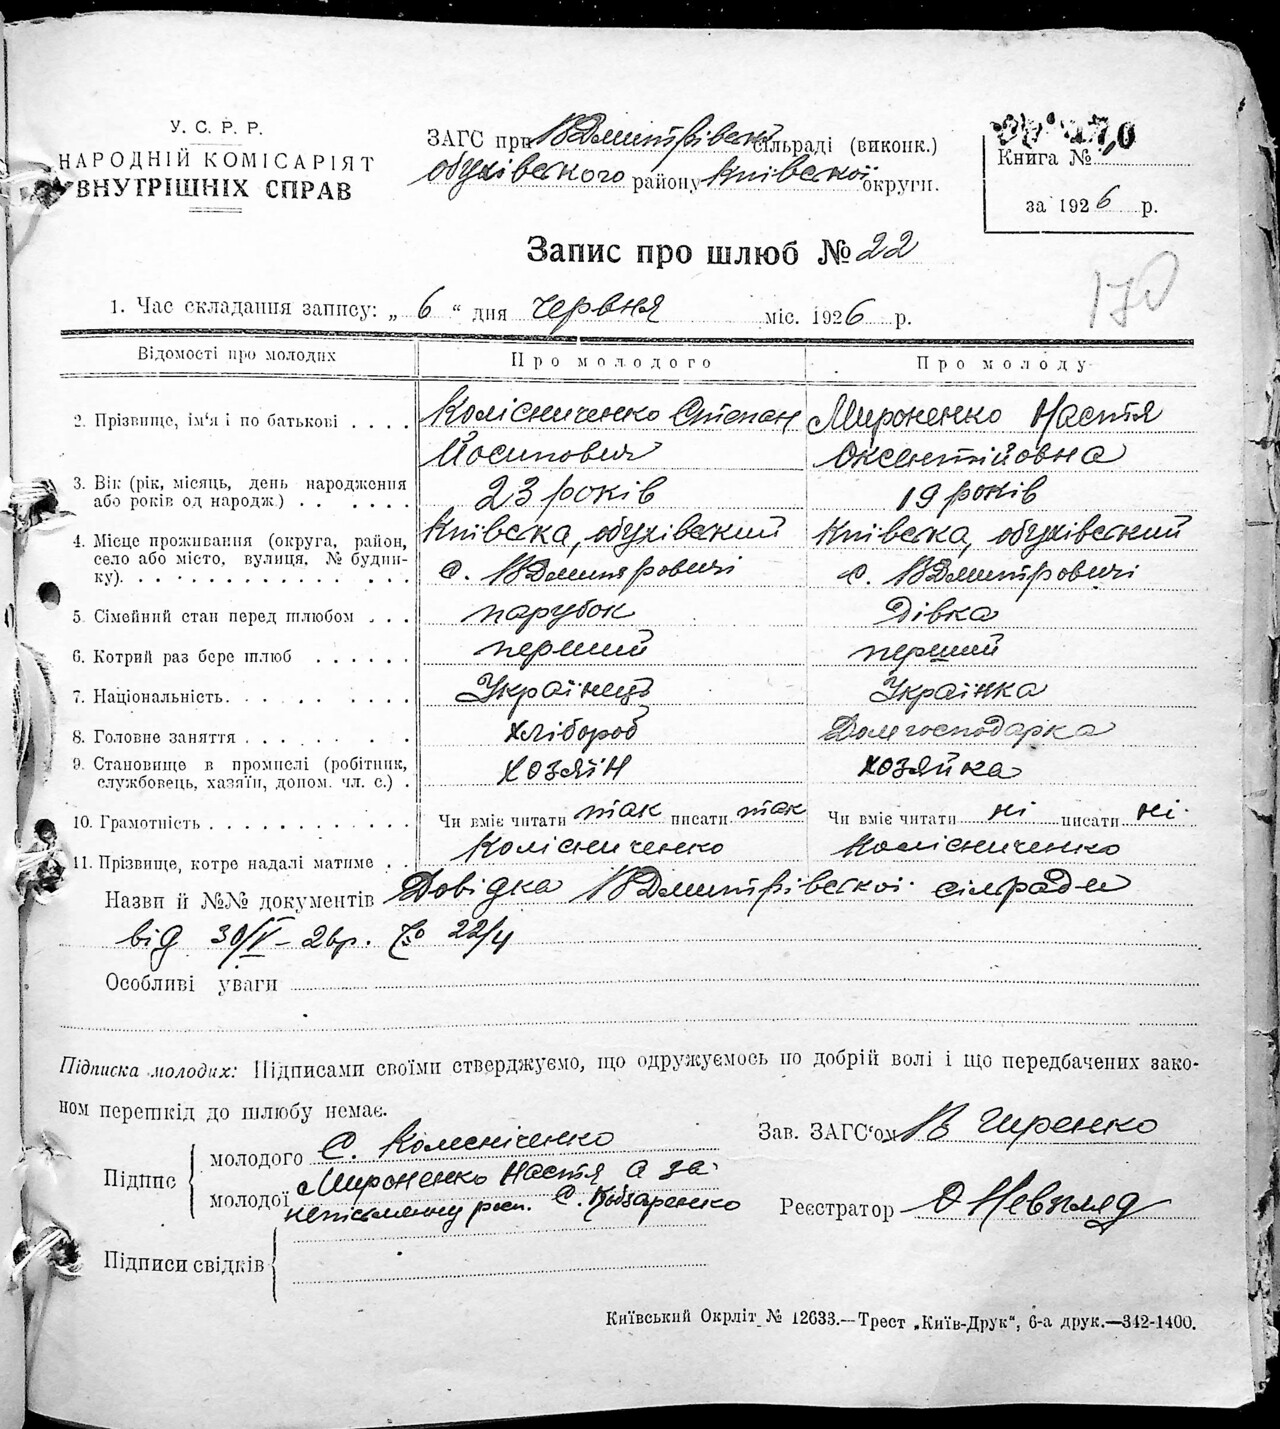 У. С. Р. Р.
НАРОДНІЙ КОМІСАРІЯТ
ВНУТРІШНІХ СПРАВ
ЗАГС при ВДмитрівскі сільраді (виконк.)
обухівского району Київскої округи.
Книга №
за 1926 р.
Запис про шлюб № 22
170
1. Час складання запису: „ 6 “ дня червня міс. 1926 р.
Відомості про молодих Про молодого Про молоду
2. Прізвище, ім‘я і по батькові . . . . Колісниченко Степан Мироненко Настя
Йосипович Оксентійовна
3. Вік (рік, місяць, день народження або років од народж.) . . . . . . 23 років 19 років
4. Місце проживання (округа, район, село або місто, вулиця, № будин-ку). Київска, обухівский Київска, обухівский
с. ВДмитровичі с. ВДмитровичі
5. Сімейний стан перед шлюбом . . . парубок дівка
6. Котрий раз бере шлюб . . . . . . перший перший
7. Національність. . . . . . . . . Українець Українка
8. Головне заняття . . . . . . . . хлібороб Домгосподарка
9. Становище в промислі (робітник, службовець, хазяїн, допом. чл. с.) . хозяін хозяйка
10. Грамотність . . . . . . . . . . . . Чи вміє читати так писати так Чи вміє читати ні писати ні
11. Прізвище, котре надалі матиме . . Колісниченко Колісниченко
Назви й №№ документів Довідка ВДмитрівскої сілради
від 30/V – 26р. № 22/4
Особливі уваги
Підписка молодих: Підписами своїми стверджуємо, що одружуємось по добрій волі і що передбачених зако-
ном перешкід до шлюбу немає.
Підпис молодого С. Колєніченко
молодої Мироненко Настя а за
неписьменну росп. С. Кобзаренко
Зав. ЗАГС‘ом В Гиренко
Реєстратор
Підписи свідків
Київський Окрліт № 12633.—Трест „Київ-Друк“, 6-а друк.—342-1400.